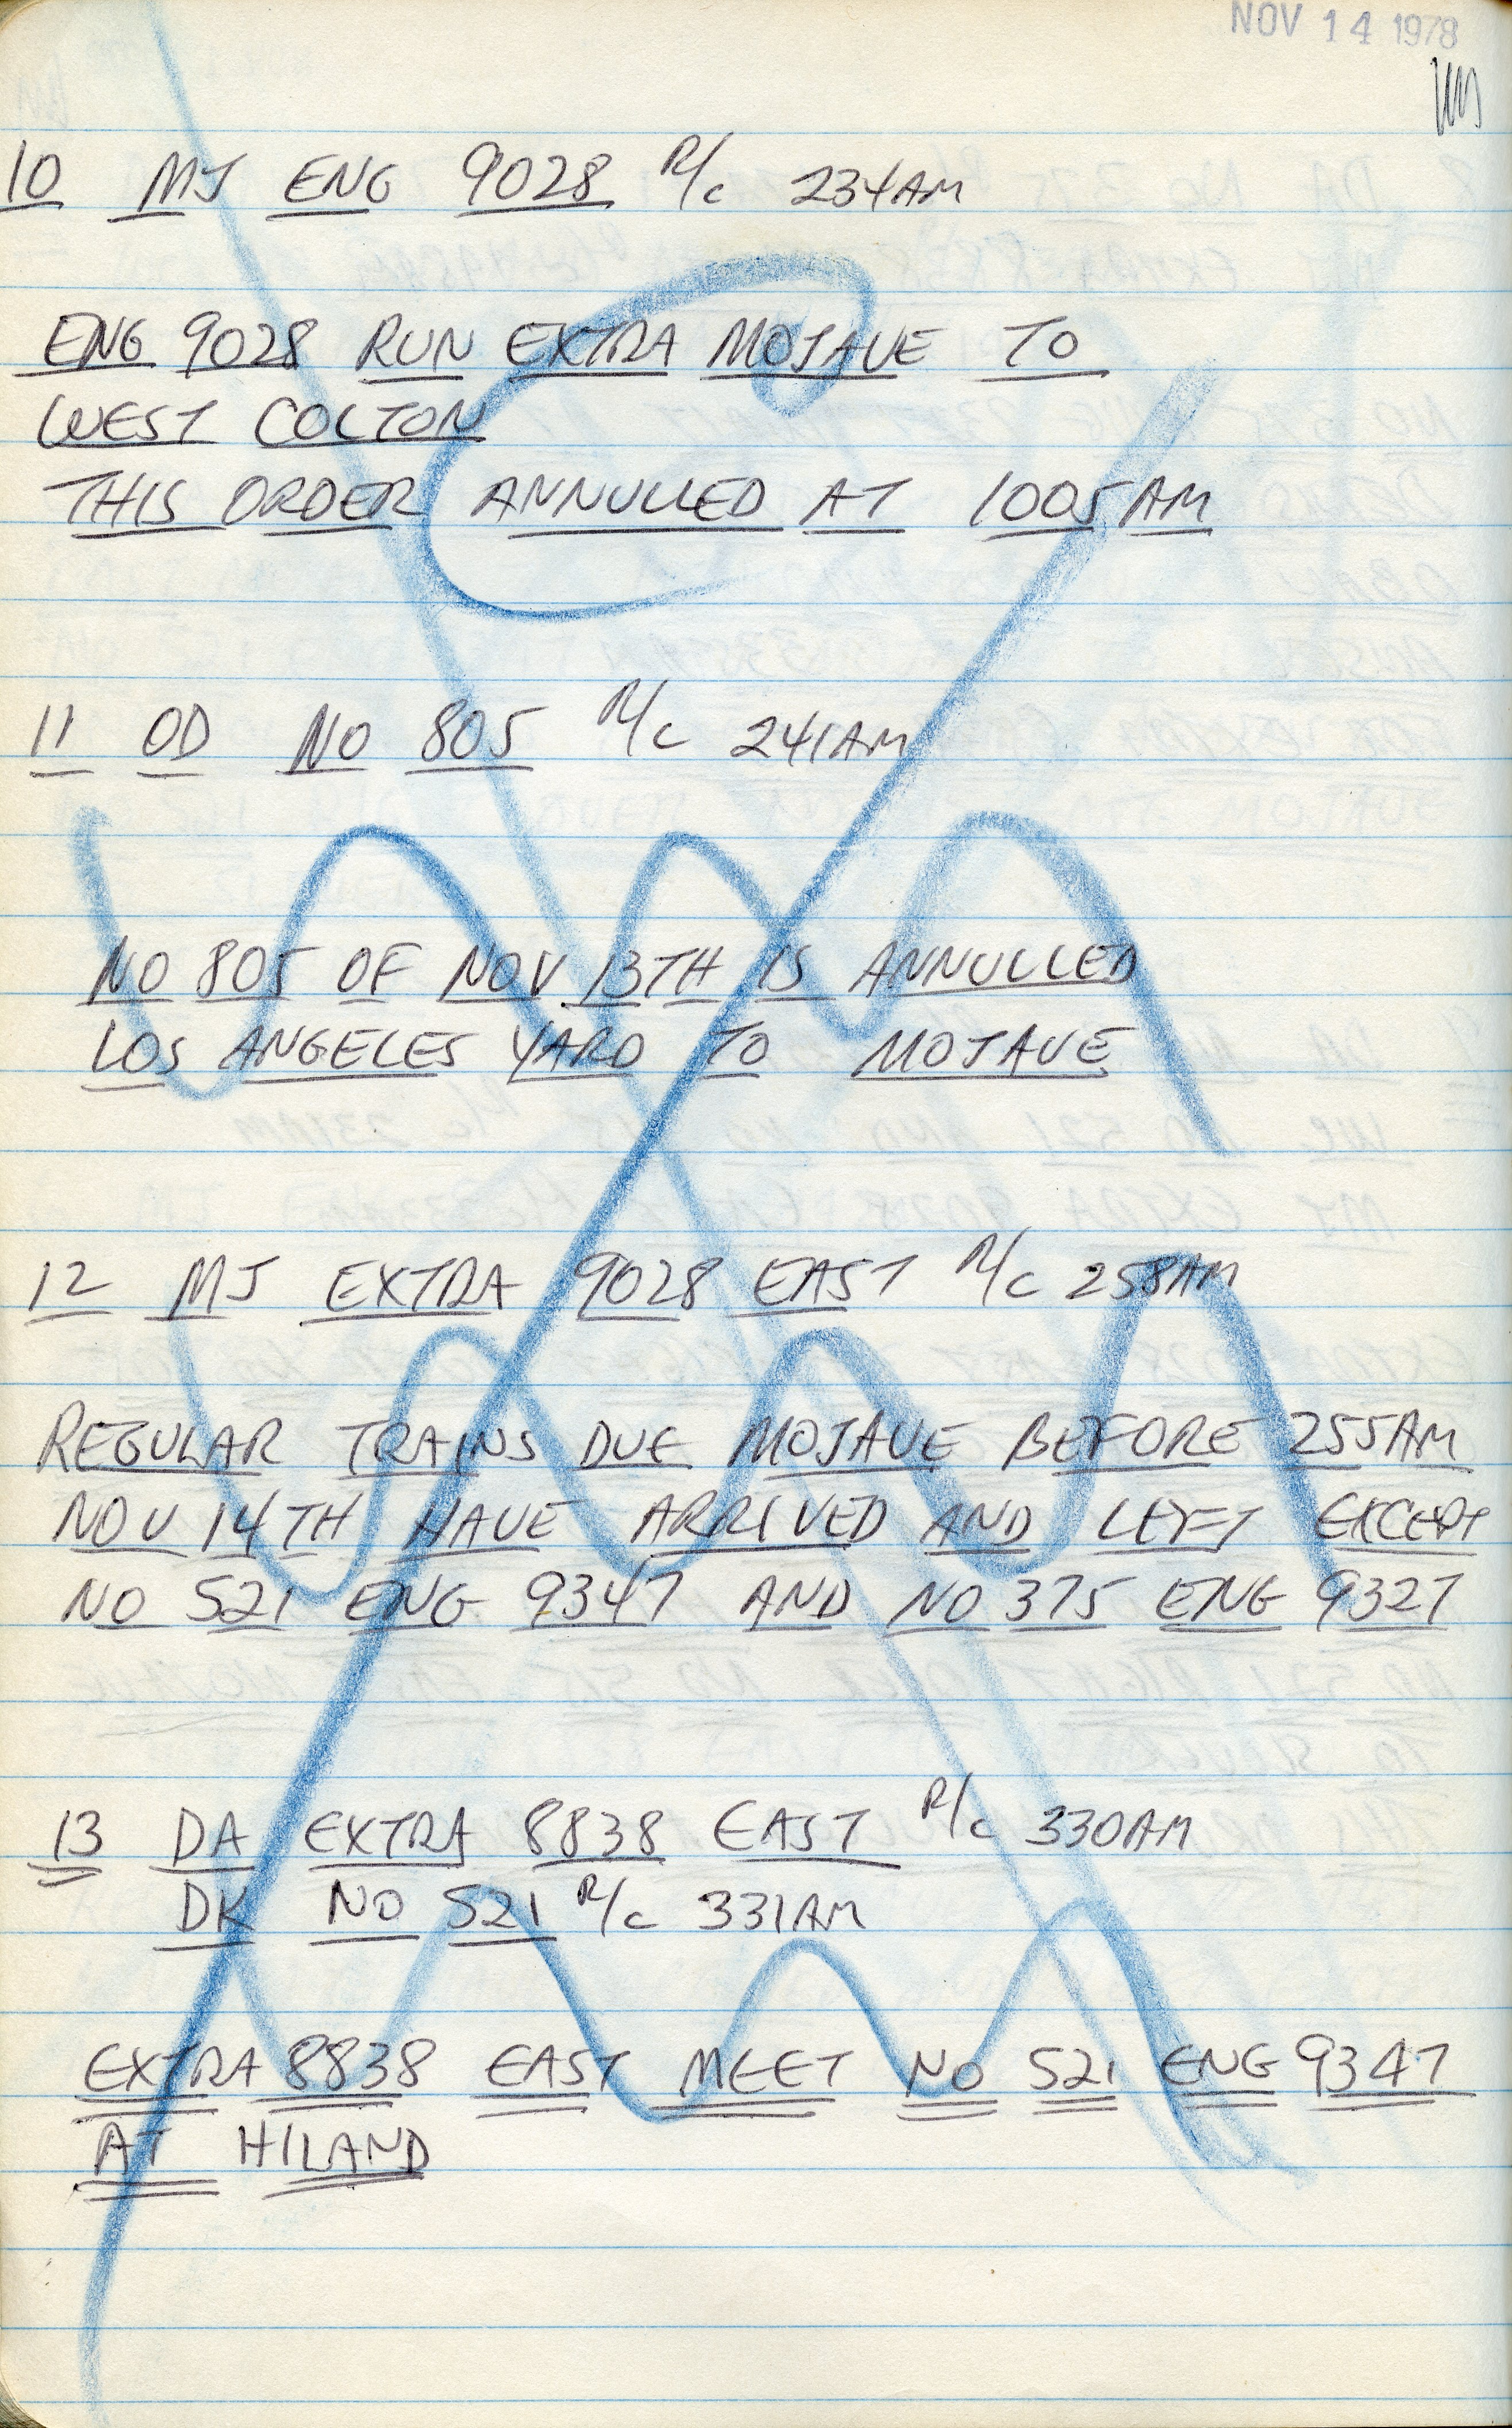 NOV 14 1978
10 MJ ENG 9028 R/C 234AM
ENG 9028 RUN EXTRA MOJAVE TO
WEST COLTON
THIS ORDER ANNULLED AT 1005AM
11 OD NO 805 R/C 241AM
NO 805 OF NOV 13TH IS ANNULLED
LOS ANGELES YARD TO MOJAVE
12 MJ EXTRA 9028 EAST R/C 258AM
REGULAR TRAINS DUE MOJAVE BEFORE 255AM
NOV 14TH HAVE ARRIVED AND LEFT EXCEPT
NO 521 ENG 9347 AND NO 375 ENG 9327
13 DA EXTRA 8838 EAST R/C 330AM
DK NO 521 R/C 331AM
EXTRA 8838 EAST MEET NO 521 ENG 9347
AT HILAND